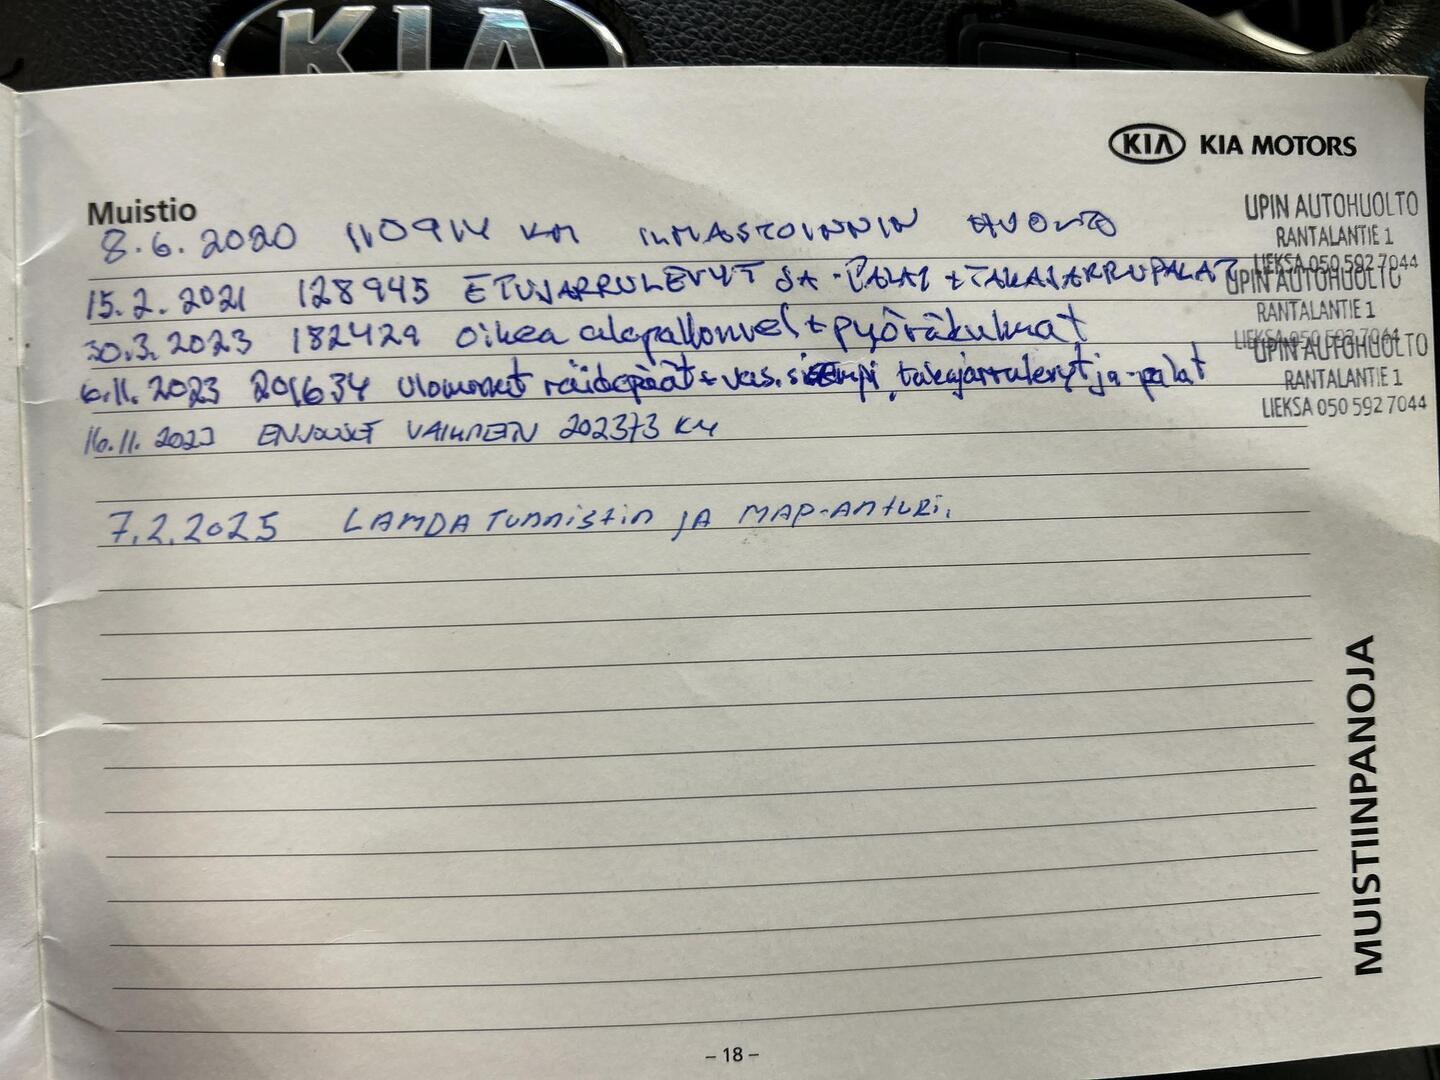 KIA
KIA KIA MOTORS
Muistio
8.6.2020 110914 KM ILMASTOINNIN HUOLTO
UPIN AUTOHUOLTO
RANTALANTIE 1
LIEKSA 050 592 7044
15.2.2021 128945 ETUJARRULEVYT JA -PALAT + TAKAJARRUPALAT
UPIN AUTOHUOLTO
RANTALANTIE 1
LIEKSA 050 592 7044
30.3.2023 182429 oikea alapallonivel + pyöräkulmat
UPIN AUTOHUOLTO
RANTALANTIE 1
LIEKSA 050 592 7044
6.11.2023 201634 Ulommat raidepäät + vas. sisempi, takajarrulevyt ja -palat
16.11.2023 202373 KM
7.2.2025 LAMDA TUNNISTIN JA MAP-ANTURI.
MUISTIINPANOJA
– 18 –